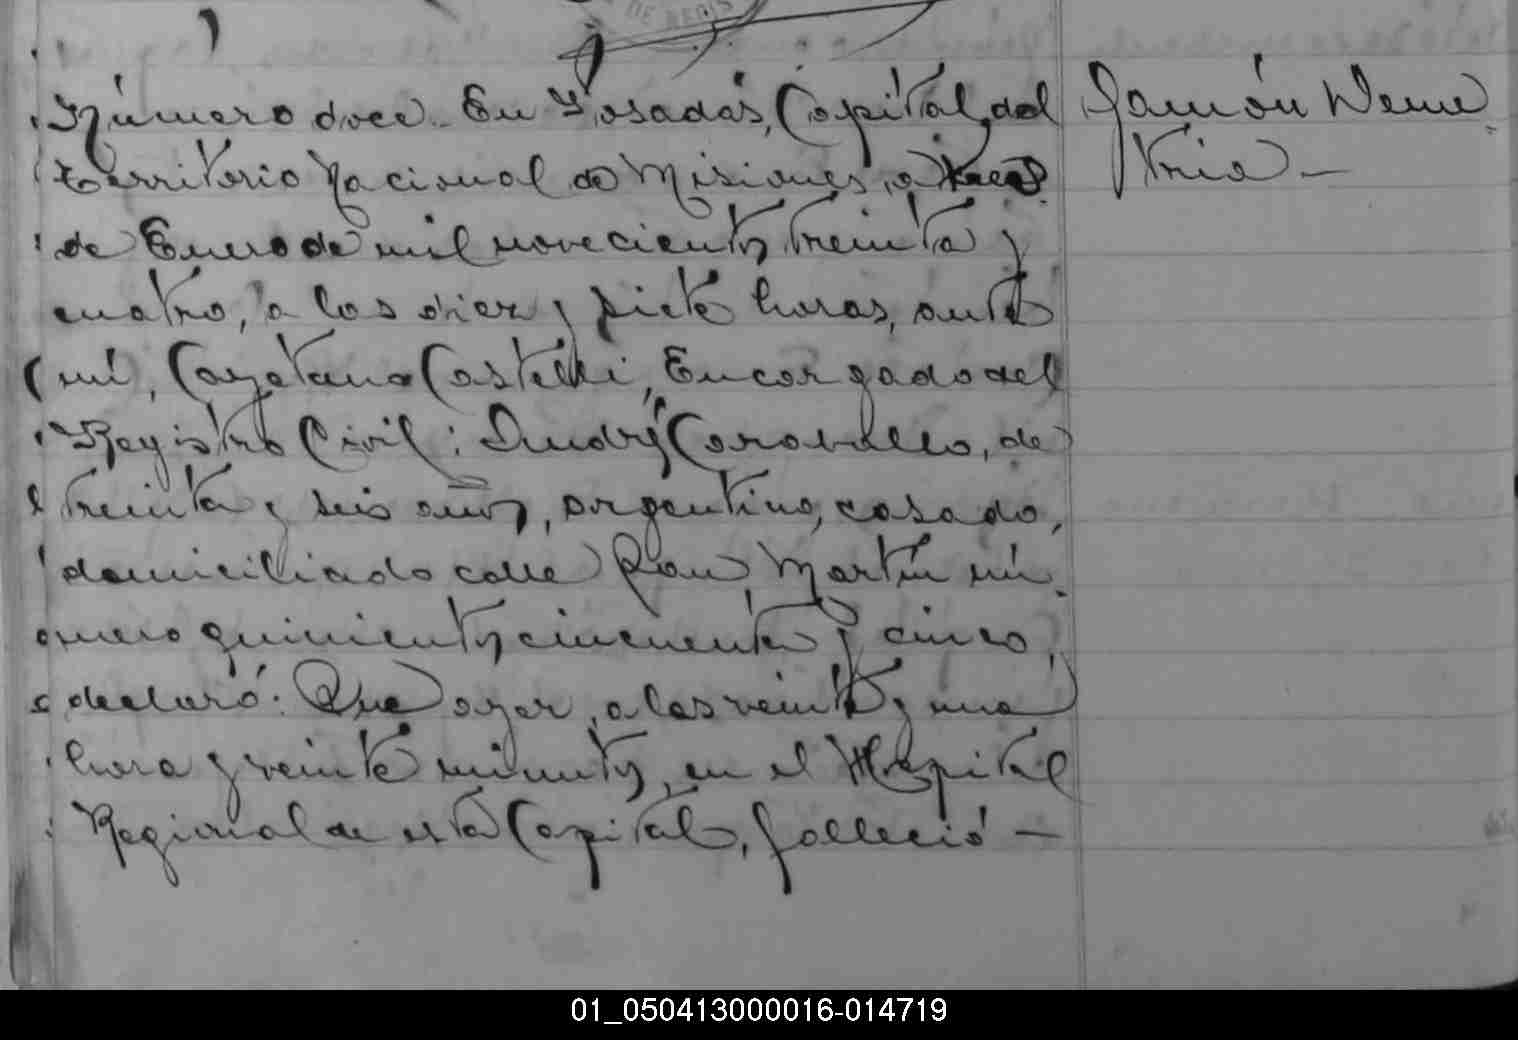 DE REGIS
Número doce. En Posadas, Capital del
territorio Nacional de Misiones, a tres
de Enero de mil novecientos treinta y
cuatro, a las diez y siete horas, ante
mí, Cayetano Castelli, Encargado del
Registro Civil: Andrés Caraballo, de
treinta y seis años, argentino, casado,
domiciliado calle San Martín nú-
mero quinientos cincuenta y cinco,
declaró: Que ayer, a las veinte y una
hora y veinte minutos, en el Hospital
Regional de esta Capital, falleció —
Ramón
01_050413000016-014719